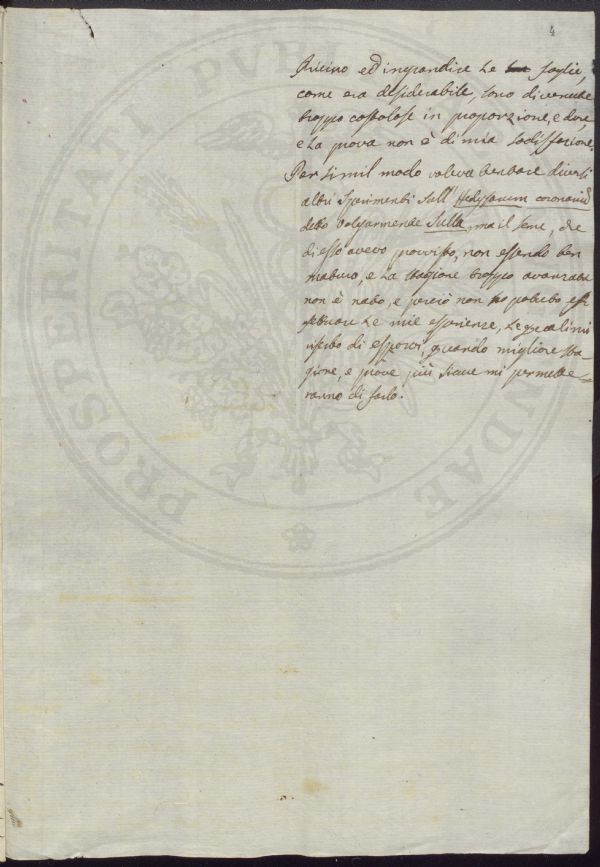 4
Ricino ed ingrandire le foglie,
come era desiderabile, sono divenute
troppo costolose in proporzione, e dure,
e la prova non è di mia sodisfazione.
Per simil modo voleva tentare diversi
altri sperimenti sull'Hedysarum coronariũ
detto volgarmente Sulla, ma il seme, che
di esso avevo provvisto, non essendo ben
maturo, e la stagione troppo avanzata
non è nato, e perciò non ho potuto ef-
fettuare le mie esperienze, le quali mi
riserbo di esporvi, quando migliore sta-
gione, e prove più sicure mi permette=
ranno di farlo.
PROSPERITATI PVBLICAE AVGENDAE